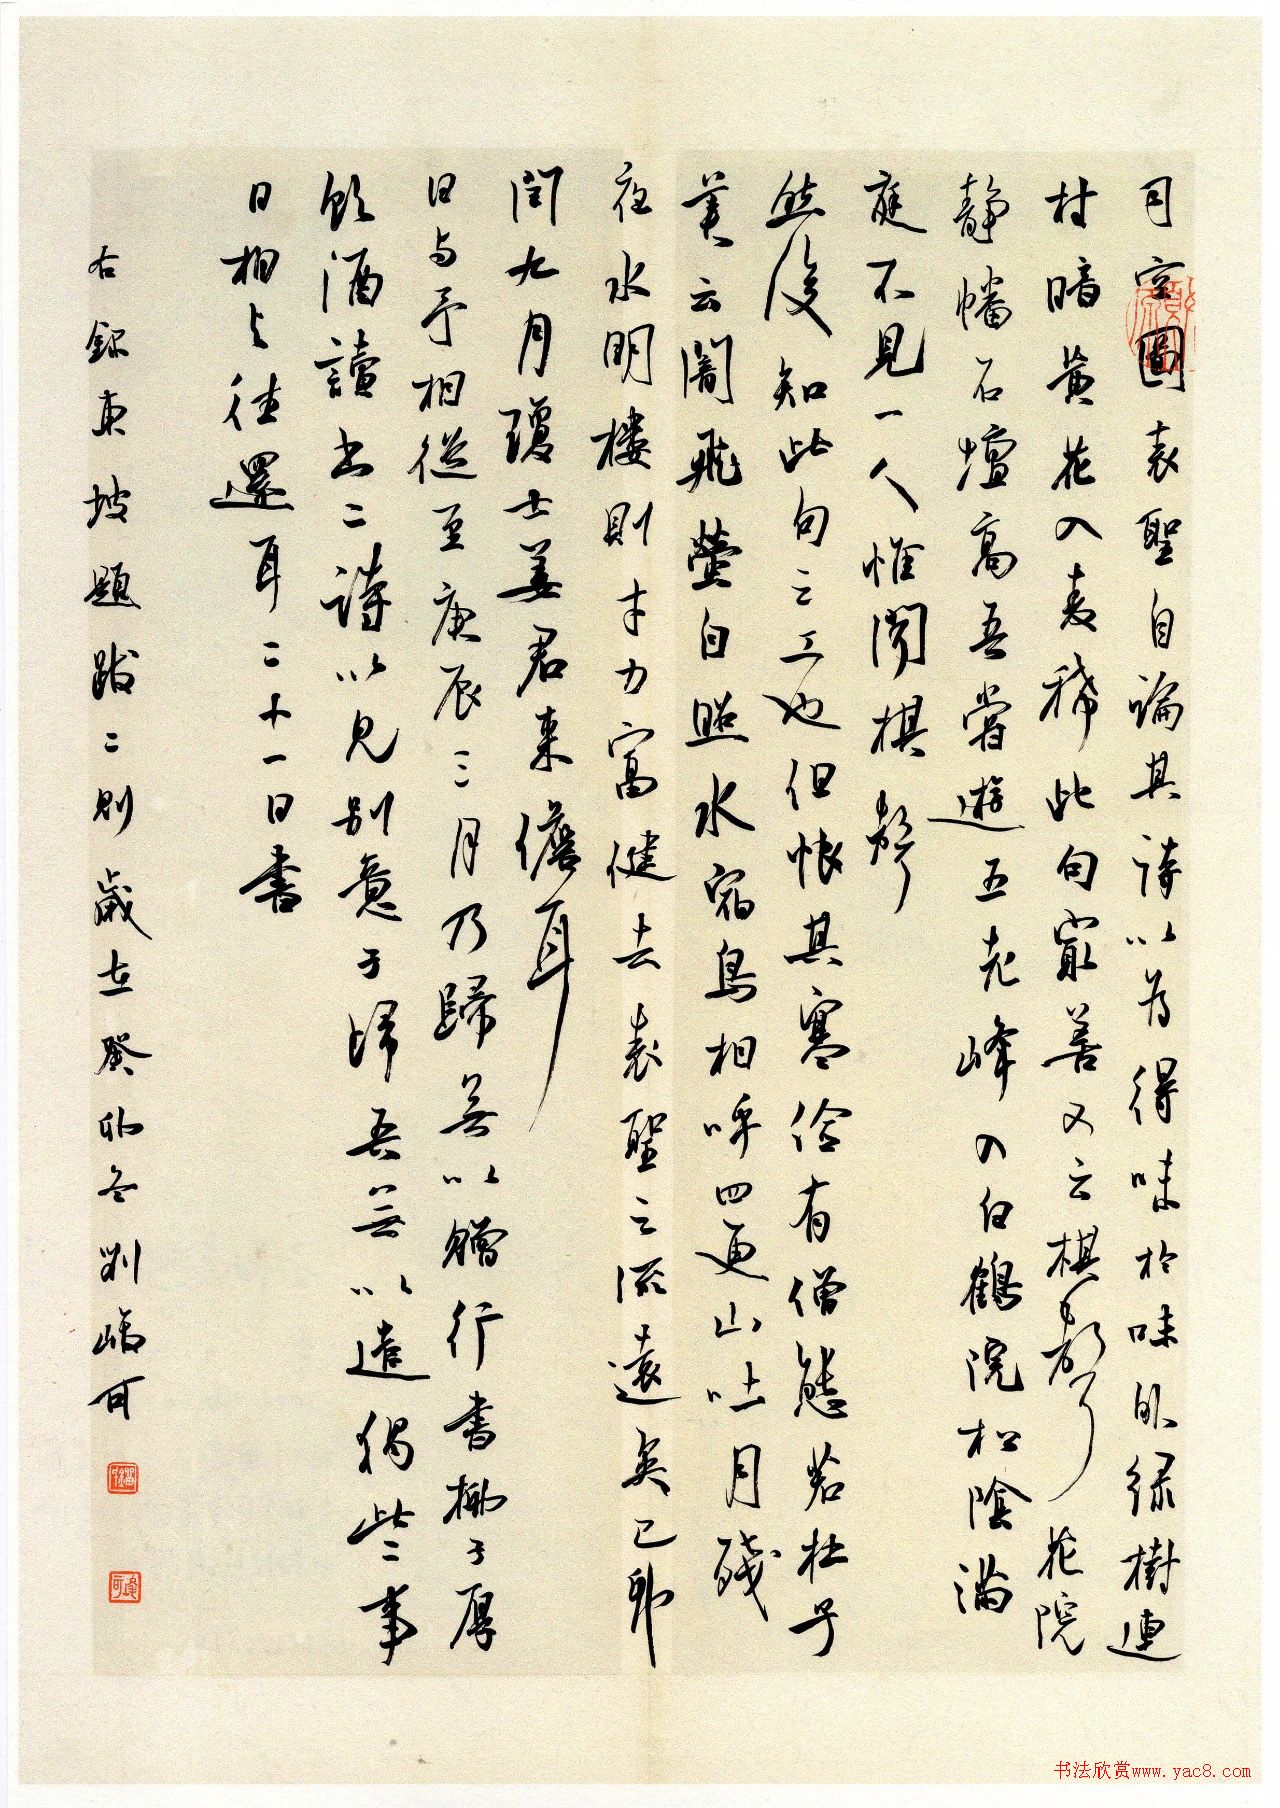 司空圖表聖自論其詩以為得味於味外綠樹連
村暗黃花入麥稀此句最善又云棋聲花院
靜幡石壇高吾嘗遊五老峰入白鶴院松陰滿
庭不見一人惟聞棋聲
然後知此句之工也但恨其寒儉有僧態若杜子
美云闇飛螢自照水宿鳥相呼四更山吐月殘
夜水明樓則才力富健去表聖之流遠矣己卯
閏九月瓊士姜君来儋耳
日与予相從至庚辰三月乃歸無以贈行書柳子厚
飲酒讀書二詩以見别意子歸吾無以遣獨此二事
日相与往還耳二十一日書
右録東坡題跋二則歲在癸卯冬劉可
书法欣赏www.yac8.com